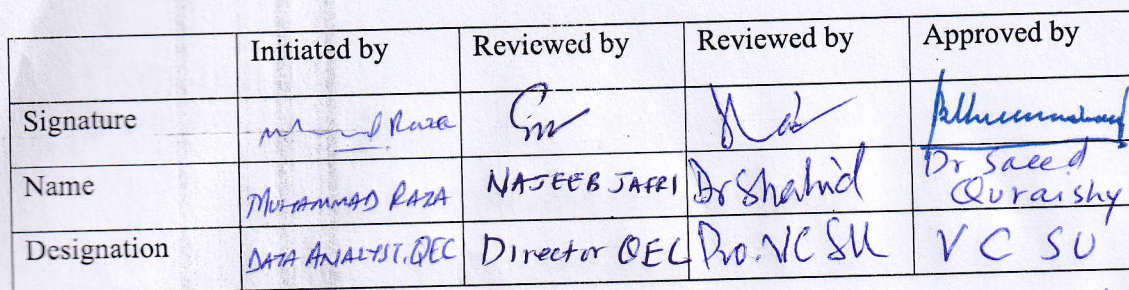 Initiated by Reviewed by Reviewed by Approved by
Signature Raza
Name MUHAMMAD RAZA NAJEEB JAFRI Dr Shahid Dr Saeed
Quraishy
Designation DATA ANALYST, QEC Director QEC Pro. VC SU V C SU